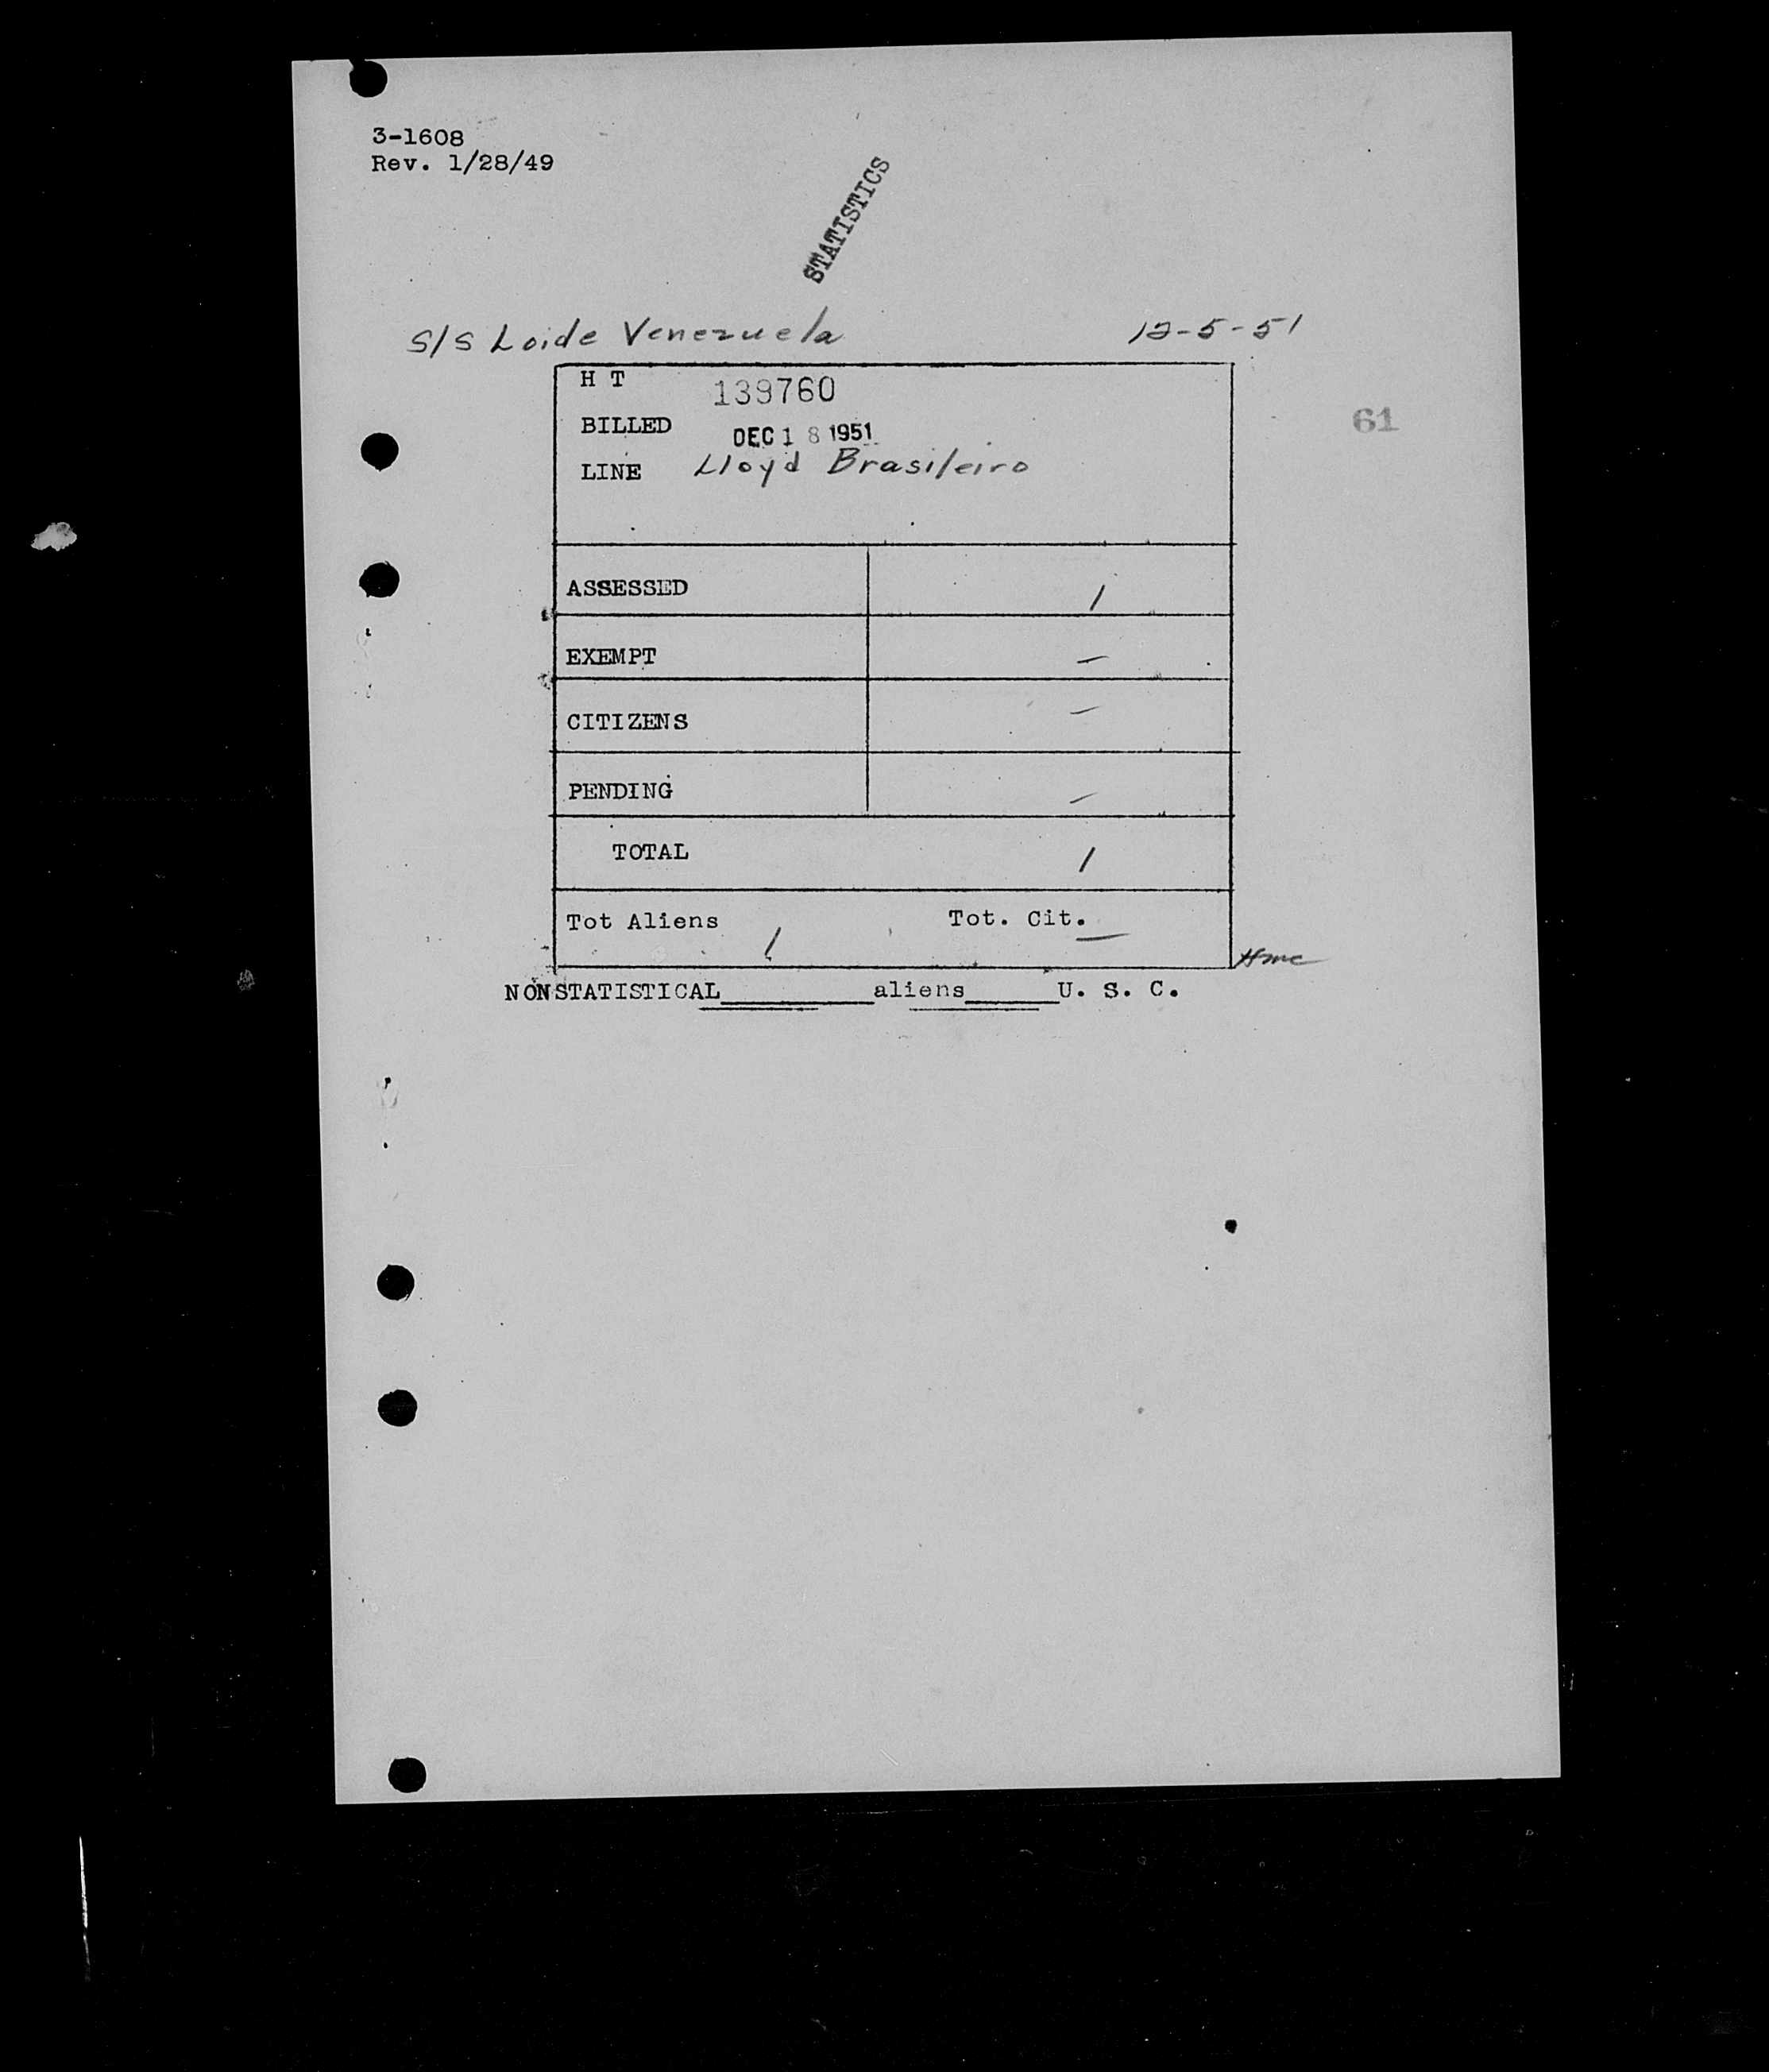 3-1608
Rev. 1/28/49
STATISTICS
S/S Loide Venezuela 12-5-51
H T 139760
61
BILLED DEC 18 1951
LINE Lloyd Brasileiro
ASSESSED 1
EXEMPT —
CITIZENS —
PENDING —
TOTAL 1
Tot Aliens 1 Tot. Cit. —
NONSTATISTICAL__________aliens______U. S. C.